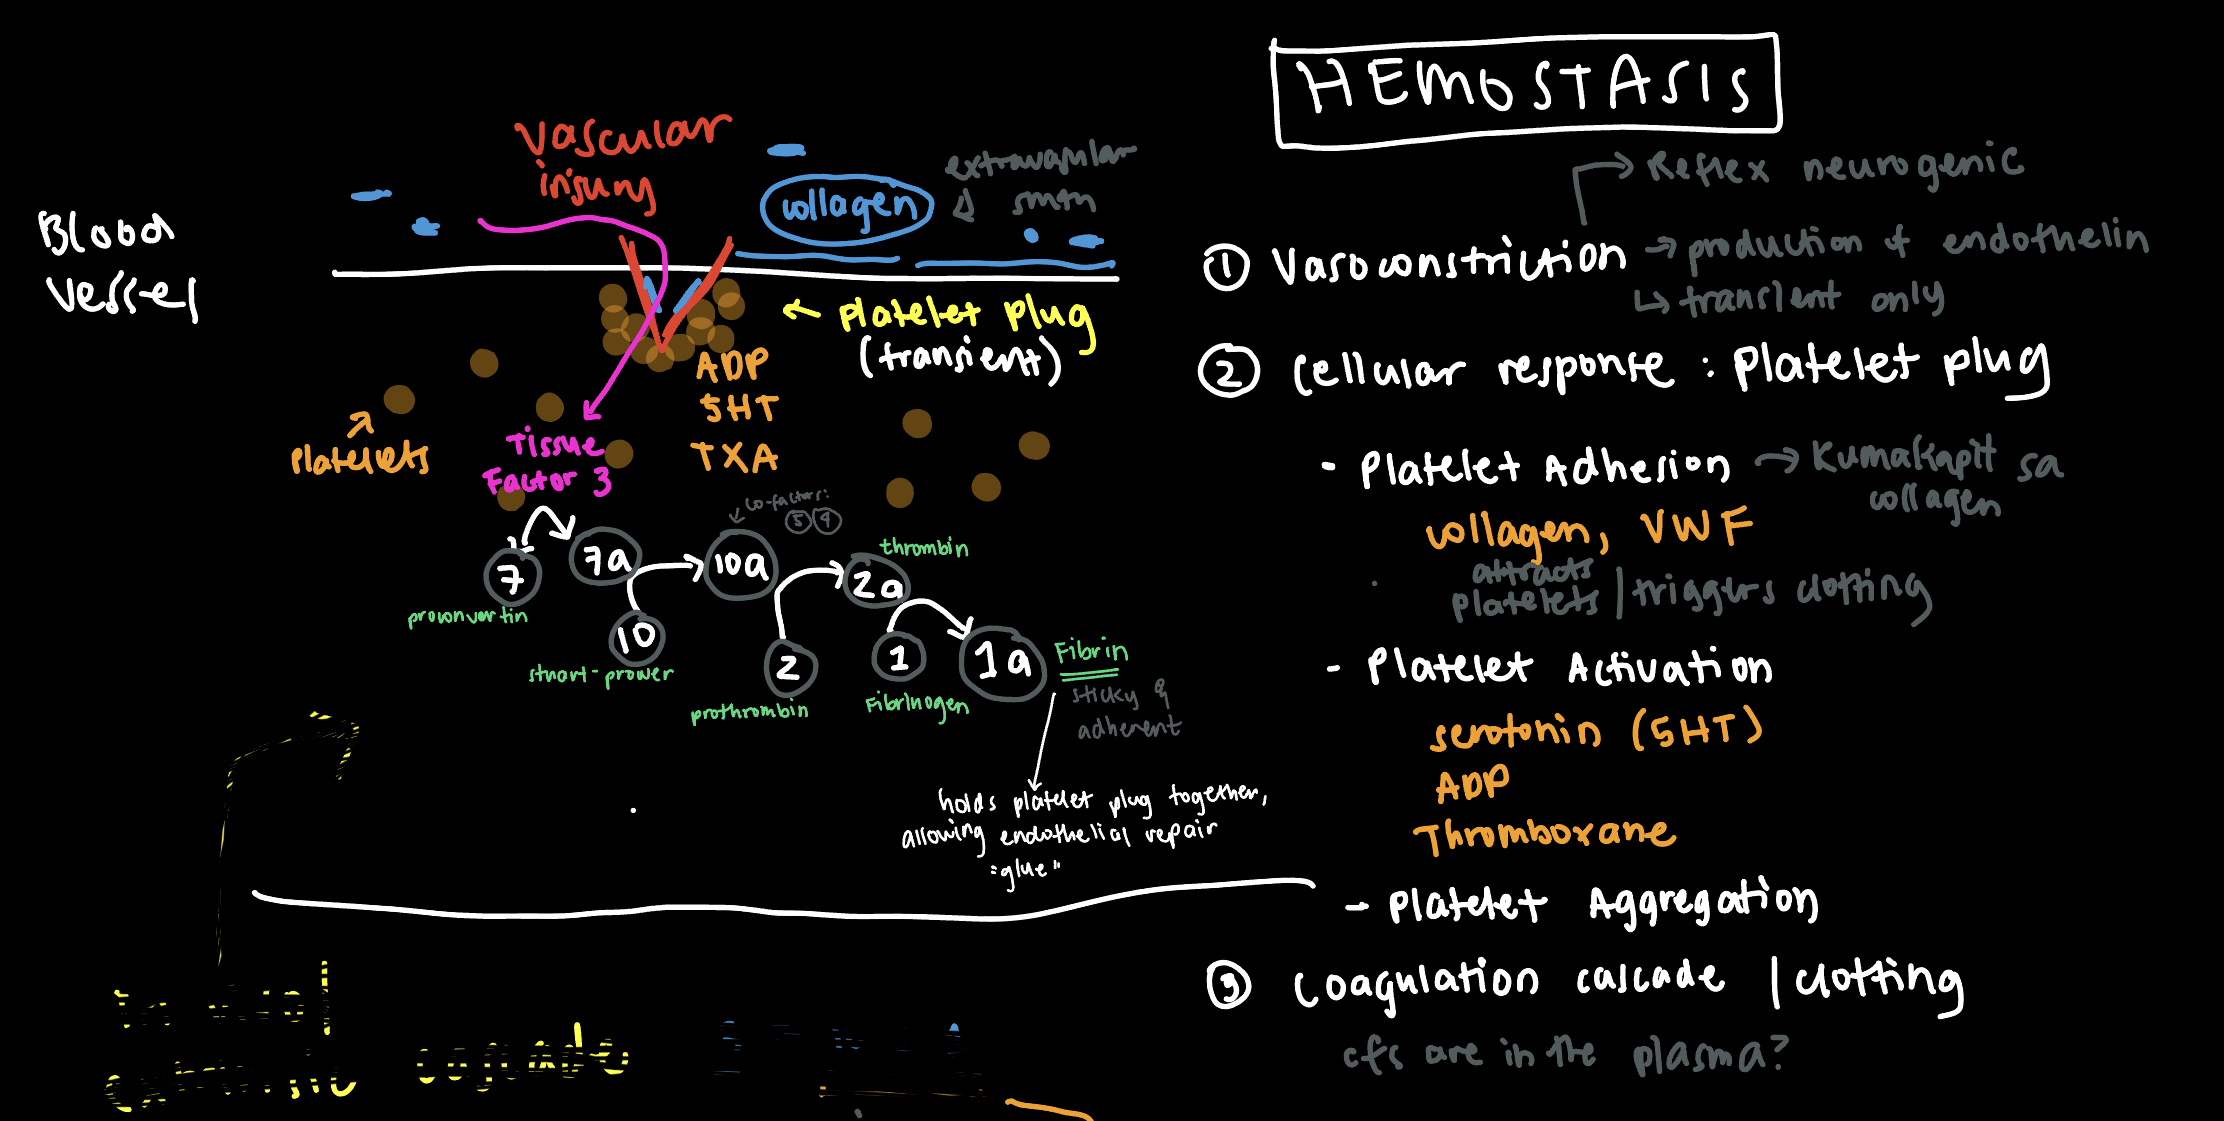 HEMOSTASIS
Blood
Vessel
Vascular
injury
collagen
extravascular
smtn
← Platelet plug
(transient)
Platelets
ADP
5HT
TXA
Tissue
Factor 3
co-factors:
5 4
7
7a
10a
2a
thrombin
proconvertin
10
stuart-prower
2
prothrombin
1
Fibrinogen
1a
Fibrin
sticky &
adherent
holds platelet plug together,
allowing endothelial repair
"glue"
cascade
→ Reflex neurogenic
① Vasoconstriction → production of endothelin
↳ transient only
② Cellular response : Platelet plug
- Platelet Adhesion → Kumakapit sa
collagen
collagen, VWF
attracts
platelets | triggers clotting
- Platelet Activation
serotonin (5HT)
ADP
Thromboxane
- Platelet Aggregation
③ Coagulation cascade | clotting
cfs are in the plasma?